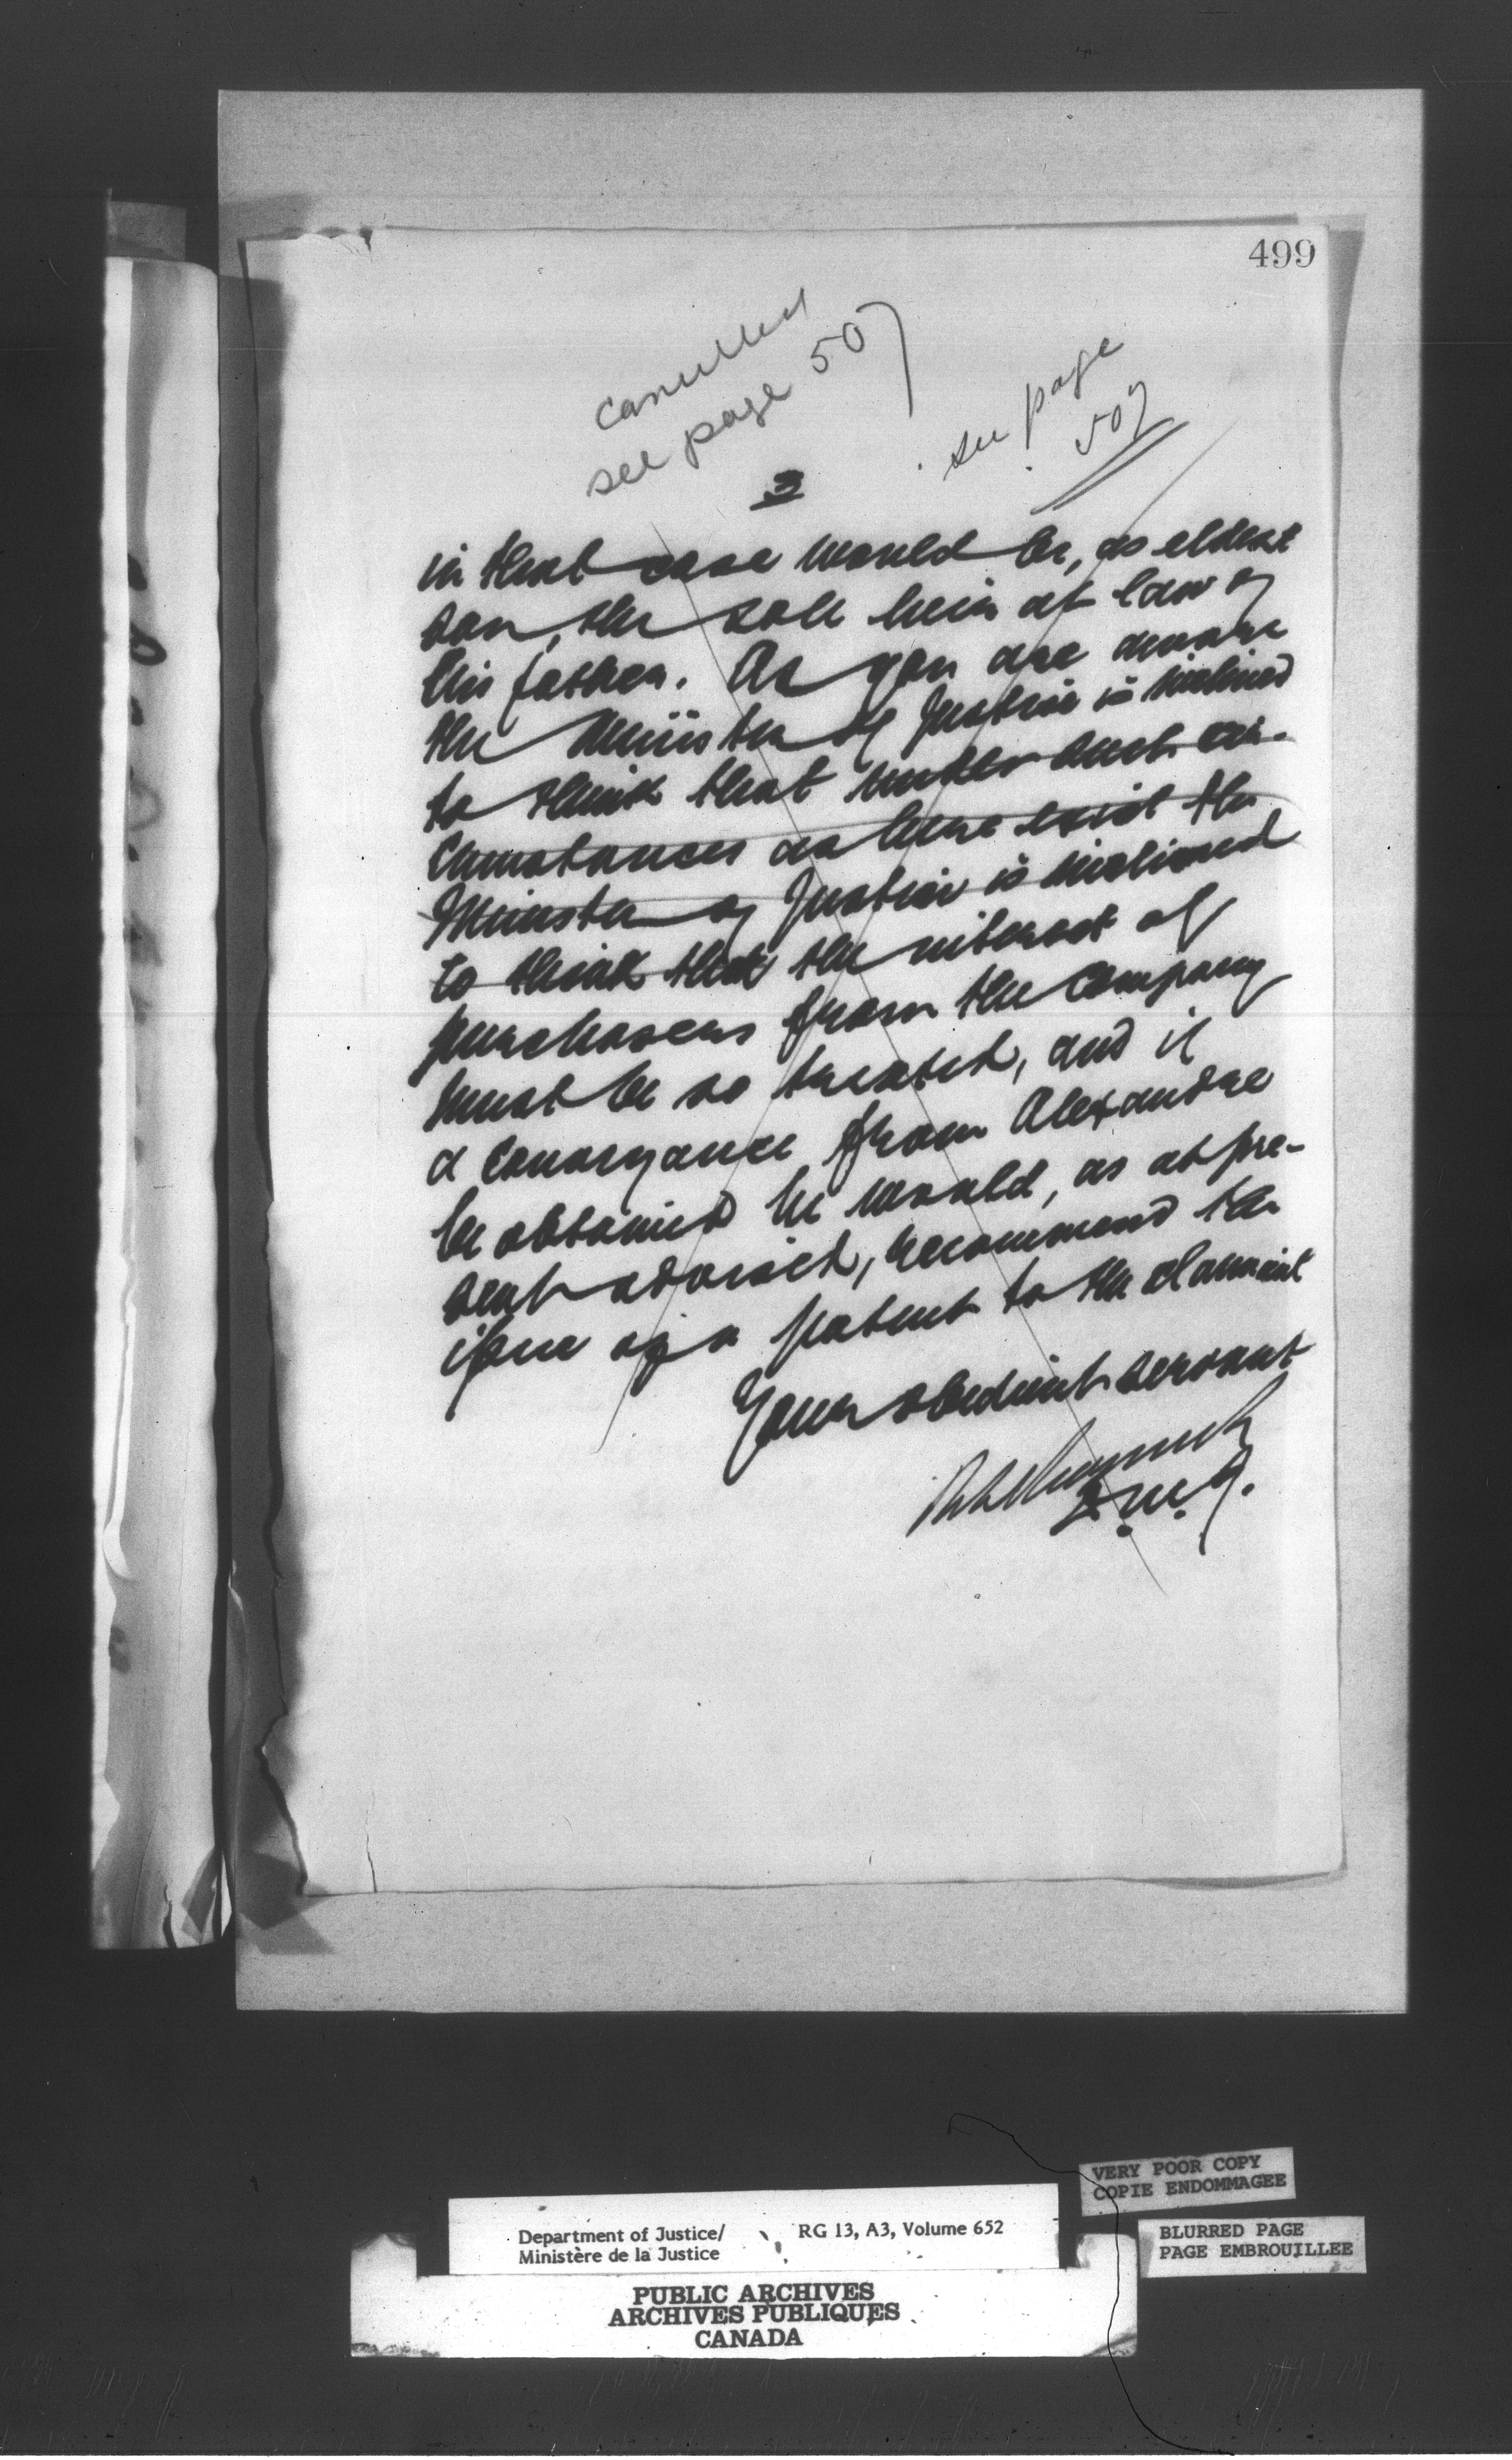 499
cancelled
see page 507
see page
507
3
in that case would be, as eldest
son, the sole heir at law of
his father. As you are aware
the Minister of Justice is inclined
to think that under such cir-
cumstances as here exist the
Minister of Justice is inclined
to think that the interest of
purchasers from the Company
must be so treated, and if
a conveyance from Alexandre
be obtained he would, as at pre-
sent advised, recommend the
issue of a patent to the claimant
Your obedient servant
D.M.J.
VERY POOR COPY
COPIE ENDOMMAGEE
Department of Justice/ RG 13, A3, Volume 652
Ministère de la Justice
BLURRED PAGE
PAGE EMBROUILLEE
PUBLIC ARCHIVES
ARCHIVES PUBLIQUES
CANADA